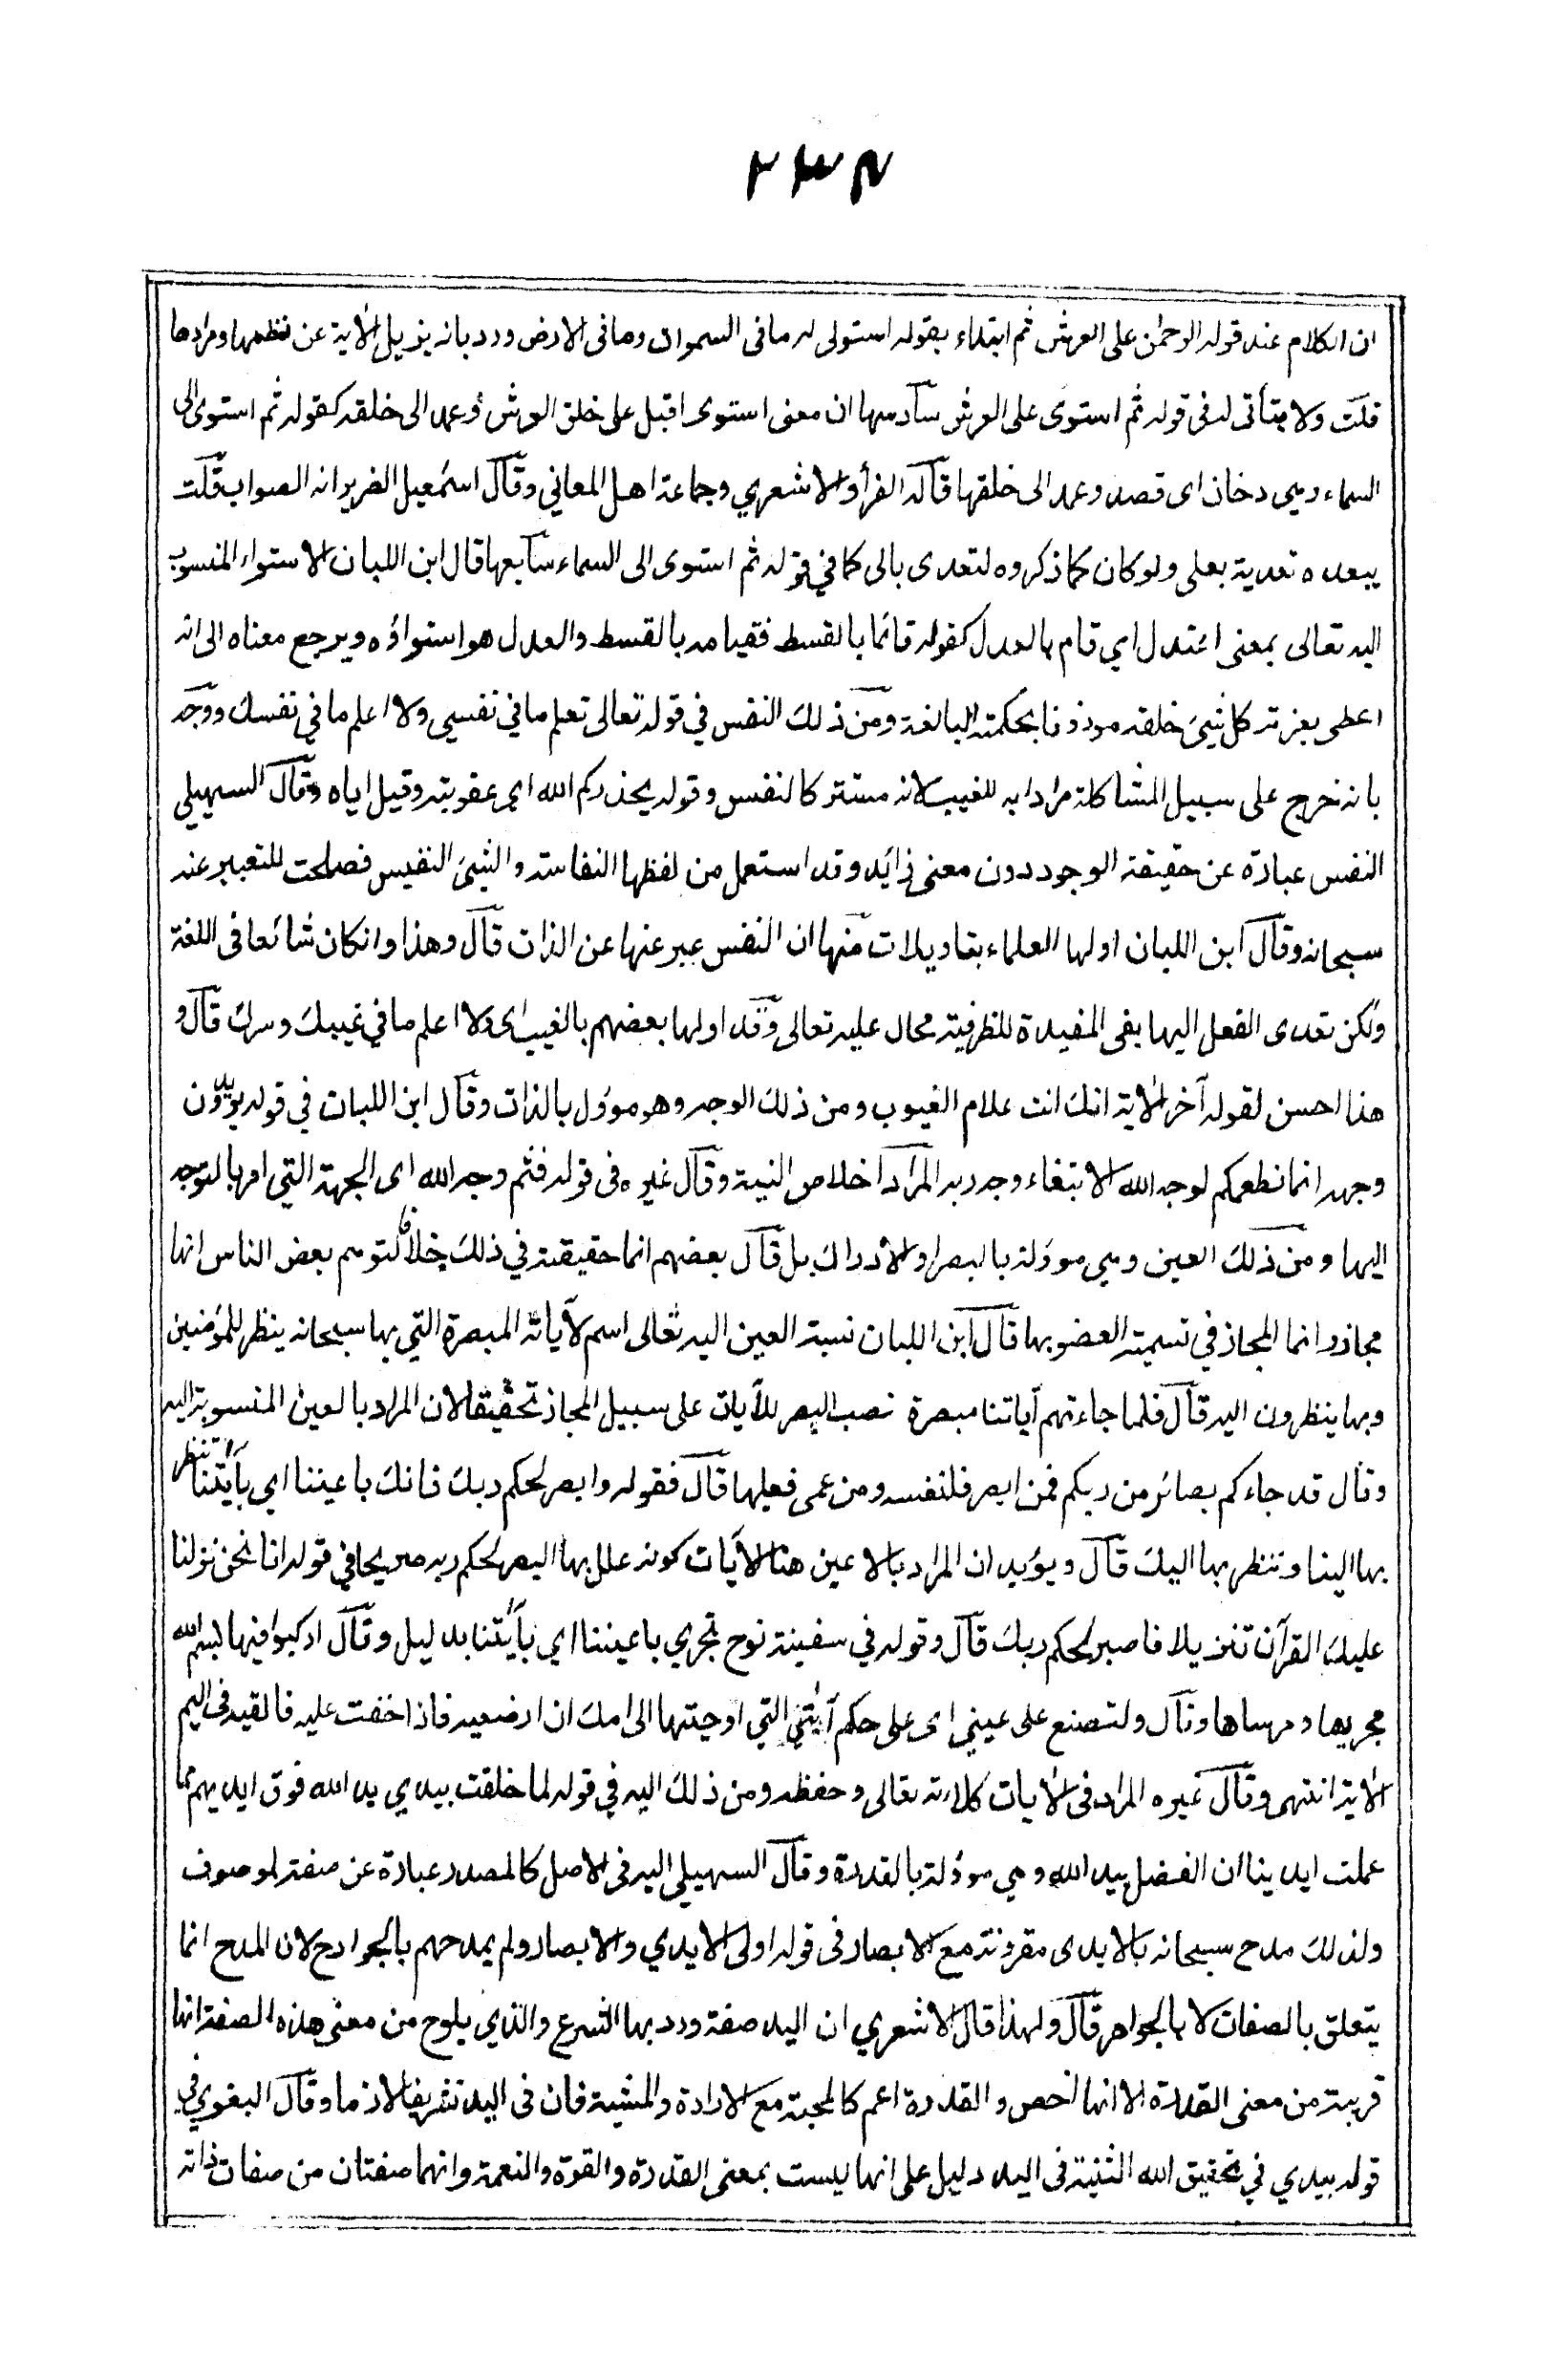 ٢٣٤
ان الكلام عند قوله الرحمن على العرش ثم ابتداء بقوله استوى له ما في السموات وما في الارض ورد بانه يزيل الآية عن نظمها ومرادها
قلت ولا يتأتى له في قوله ثم استوى على العرش سادسها ان معنى استوى اقبل على خلق العرش وعمد الى خلقه كقوله ثم استوى الى
السماء وهي دخان اى قصد وعمد الى خلقها قاله الفرأ والاشعري وجماعة اهل المعاني وقال اسمعيل الضرير انه الصواب قلت
يبعده تعديته بعلى ولو كان كما ذكروه لتعدى بالى كما في قوله ثم استوى الى السماء سابعها قال ابن اللبان الاستواء المنسوب
اليه تعالى بمعنى اعتدل اي قام بالعدل كقوله قائما بالقسط فقيامه بالقسط والعدل هو استواؤه ويرجع معناه الى انه
اعطى بعزته كل شيئ خلقه موزونا بحكمته البالغة ومن ذلك النفس في قوله تعالى تعلم ما في نفسي ولا اعلم ما في نفسك ووجه
بانه خرج على سبيل المشاكلة مرادا به للغيب لانه مستتر كالنفس وقوله يحذركم الله اى عقوبته وقيل اياه وقال السهيلي
النفس عبارة عن حقيقة الوجود دون معنى زائد وقد استعمل من لفظها النفاسة والشيئ النفيس فصلحت للتعبير عنه
سبحانه وقال ابن اللبان اولها العلماء بتاويلات منها ان النفس عبر عنها عن الذات قال وهذا وان كان شائعا في اللغة
ولكن تعدى الفعل اليها بفى المفيدة للظرفية محال عليه تعالى وقد اولها بعضهم بالغيب اى ولا اعلم ما في غيبك وسرك قال و
هذا احسن لقوله آخر الآية انك انت علام الغيوب ومن ذلك الوجه وهو موؤل بالذات وقال ابن اللبات في قوله يريدون
وجهه انما نطعمكم لوجه الله الا ابتغاء وجه ربه المراد اخلاص النية وقال غيره فى قوله فثم وجه الله اى الجهة التي امر بالتوجه
اليها ومن ذلك العين وهي موؤلة بالبصر او الادراك بل قال بعضهم انها حقيقة في ذلك خلافا لتوهم بعض الناس انها
مجاز وانما المجاز في تسمية العضو بها قال ابن اللبان نسبة العين اليه تعالى اسم لآياته المبصرة التي بها سبحانه ينظر للمؤمنين
وبها ينظرون اليه قال فلما جاءتهم آياتنا مبصرة نصب البصر للآيات على سبيل المجاز تحقيقا لان المراد بالعين المنسوبة اليه
وقال قد جاءكم بصائر من ربكم فمن ابصر فلنفسه ومن عمى فعليها قال فقوله واصبر لحكم ربك فانك باعيننا اي بآيتنا تنظر
بها الينا وننظر بها اليك قال ويؤيد ان المراد بالاعين هنا الآيات كونه علل بها الصبر لحكم ربه صريحا في قوله انا نحن نزلنا
عليك القرآن تنزيلا فاصبر لحكم ربك قال وقوله في سفينة نوح تجري باعيننا اي بآيتنا بدليل وقال اركبوا فيها بسم الله
مجريها ومرساها وقال ولتصنع على عيني اى على حكم آيتي التي اوحيتها الى امك ان ارضعيه فاذا خفت عليه فالقيه فى اليم
الآية انتهى وقال غيره المراد فى الآيات كلاءته تعالى وحفظه ومن ذلك اليد في قوله لما خلقت بيدي يد الله فوق ايديهم مما
عملت ايدينا ان الفضل بيد الله وهي موؤلة بالقدرة وقال السهيلي اليد فى الاصل كالمصدر عبارة عن صفة لموصوف
ولذلك مدح سبحانه بالايدى مقرونة مع الابصار فى قوله اولى الايدي والابصار ولم يمدحهم بالجوارح لان المدح انما
يتعلق بالصفات لا بالجواهر قال ولهذا قال الاشعري ان اليد صفة ورد بها الشرع والذي يلوح من معنى هذه الصفة انها
قريبة من معنى القدرة الا انها اخص والقدرة اعم كالمحبة مع الارادة والمشية فان فى اليد تشريفا لازما وقال البغوي في
قوله بيدي في تحقيق الله التثنية فى اليد دليل على انها ليست بمعنى القدرة والقوة والنعمة وانهما صفتان من صفات ذاته